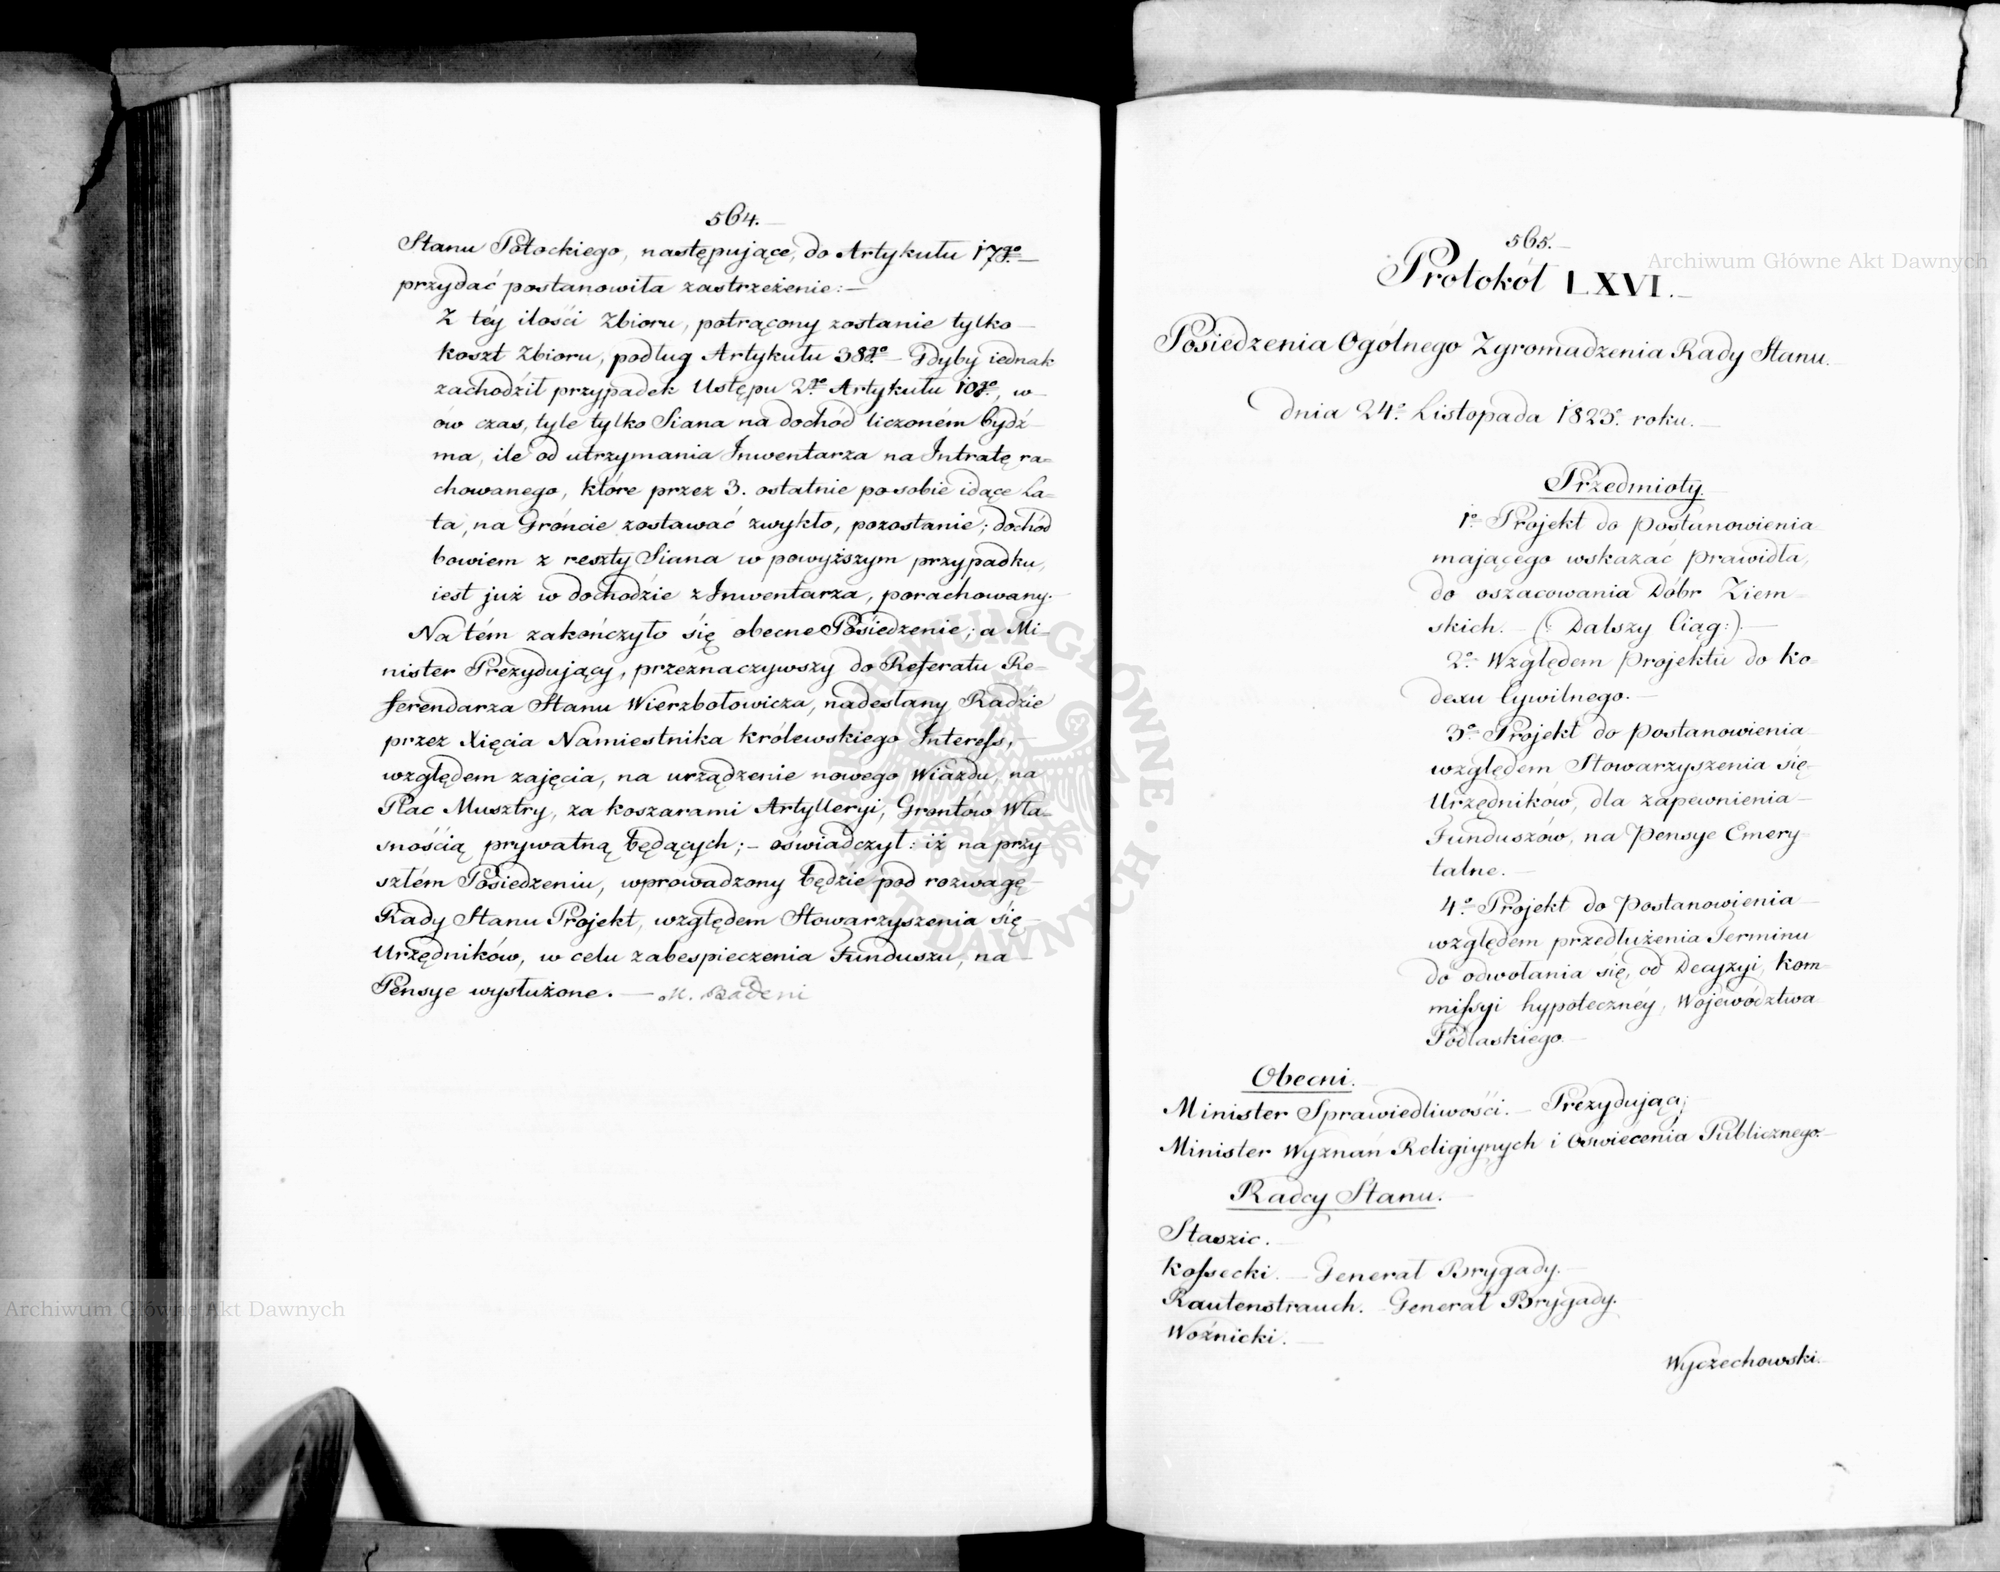 564.
Stanu Potockiego, następujące, do Artykułu 17go
przydać postanowiła zastrzeżenie: —
Z téy ilości Zbioru, potrącony zostanie tylko —
koszt Zbioru, podług Artykułu 38go — Gdyby iednak
zachodził przypadek Ustępu 2go Artykułu 10go, w-
ów czas, tyle tylko Siana na dochód liczoném bydź
ma, ile od utrzymania Inwentarza na Intratę ra=
chowanego, które przez 3. ostatnie po sobie idące La=
ta, na Gróncie zostawać zwykło, pozostanie; dochód
bowiem z reszty Siana w powyższym przypadku,
iest już w dochodzie z Inwentarza, porachowany. —
Na tém zakończyło się obecne Posiedzenie; a Mi-
nister Prezydujący, przeznaczywszy do Referatu Re-
ferendarza Stanu Wierzbołowicza, nadesłany Radzie
przez Xięcia Namiestnika Królewskiego Interess, —
względem zajęcia, na urządzenie nowego Wiazdu, na
Plac Musztry, za koszarami Artylleryi, Grontów Wła-
snością prywatną będących; — oświadczył: iż na przy-
szłém Posiedzeniu, wprowadzony będzie pod rozwagę
Rady Stanu Projekt, względem Stowarzyszenia się
Urzędników, w celu zabespieczenia Funduszu, na —
Pensye wysłużone. — M. Badeni
565. —
Protokół LXVI. —
Posiedzenia Ogólnego Zgromadzenia Rady Stanu.
dnia 24o Listopada 1823o roku. —
Przedmioty. —
1o Projekt do postanowienia
mającego wskazać prawidła,
do oszacowania Dóbr Ziem=
skich. — (: Dalszy Ciąg :) —
2o Względem projektu do Ko-
dexu Cywilnego. —
3o Projekt do postanowienia
względem Stowarzyszenia się
Urzędników, dla zapewnienia —
Funduszów, na Pensye Emery-
talne. —
4o Projekt do postanowienia
względem przedłużenia Terminu
do odwołania się, od Decyzyi, Kom=
missyi hypoteczney, Województwa
Podlaskiego. —
Obecni. —
Minister Sprawiedliwości. — Prezydujący
Minister Wyznań Religiynych i Oswiecenia Publicznego. —
Radcy Stanu. —
Staszic. —
Kossecki. — Generał Brygady. —
Rautenstrauch. Generał Brygady.
Woźnicki. —
Wyczechowski.
Archiwum Główne Akt Dawnych
Archiwum Główne Akt Dawnych
ARCHIWUM GŁÓWNE AKT DAWNYCH